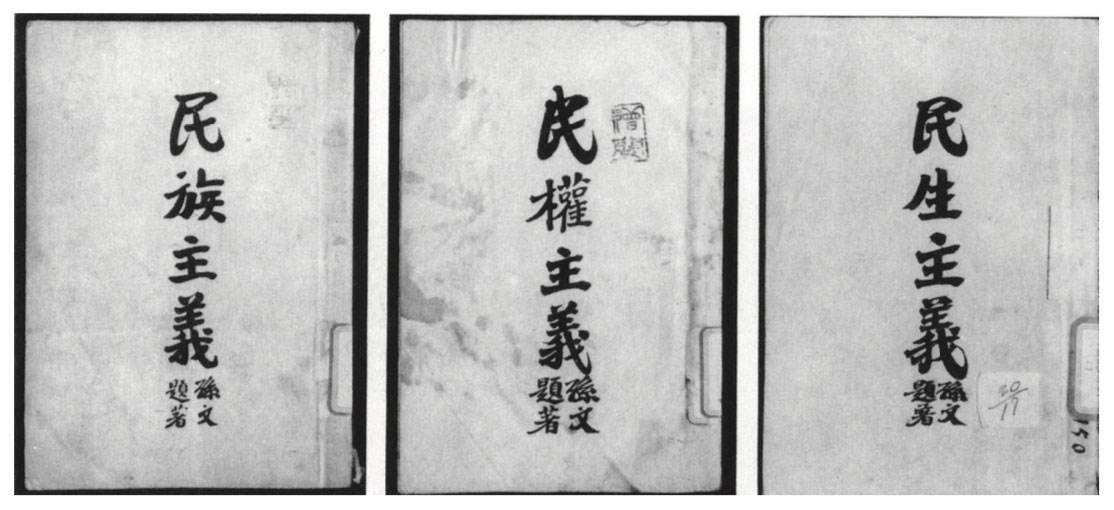 民族主義
孫文
題著
民權主義
孫文
題著
民生主義
孫文
題著
20/11
150